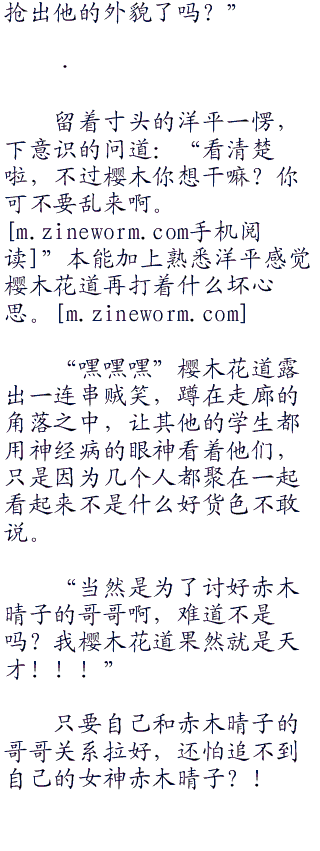 抢出他的外貌了吗？”
．
留着寸头的洋平一愣，
下意识的问道：“看清楚
啦，不过樱木你想干嘛？你
可不要乱来啊。
[m.zineworm.com手机阅
读]”本能加上熟悉洋平感觉
樱木花道再打着什么坏心
思。[m.zineworm.com]
“嘿嘿嘿”樱木花道露
出一连串贼笑，蹲在走廊的
角落之中，让其他的学生都
用神经病的眼神看着他们，
只是因为几个人都聚在一起
看起来不是什么好货色不敢
说。
“当然是为了讨好赤木
晴子的哥哥啊，难道不是
吗？我樱木花道果然就是天
才！！！”
只要自己和赤木晴子的
哥哥关系拉好，还怕追不到
自己的女神赤木晴子？！